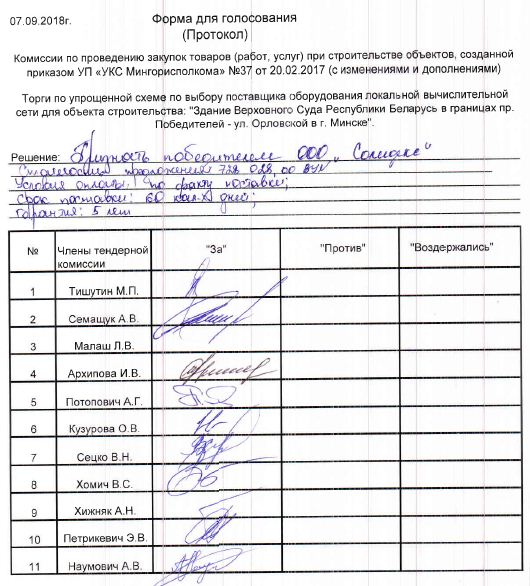 07.09.2018г.
Форма для голосования
(Протокол)
Комиссии по проведению закупок товаров (работ, услуг) при строительстве объектов, созданной
приказом УП «УКС Мингорисполкома» №37 от 20.02.2017 (с изменениями и дополнениями)
Торги по упрощенной схеме по выбору поставщика оборудования локальной вычислительной
сети для объекта строительства: "Здание Верховного Суда Республики Беларусь в границах пр.
Победителей - ул. Орловской в г. Минске".
Решение: Признать победителем ООО
предложения 728 028,00 BYN
Условия оплаты: по факту поставки;
Срок поставки: 60 дней;
Гарантия: 5 лет
№ Члены тендерной комиссии "За" "Против" "Воздержались"
1 Тишутин М.П.
2 Семащук А.В.
3 Малаш Л.В.
4 Архипова И.В.
5 Потопович А.Г.
6 Кузурова О.В.
7 Сецко В.Н.
8 Хомич В.С.
9 Хижняк А.Н.
10 Петрикевич Э.В.
11 Наумович А.В.